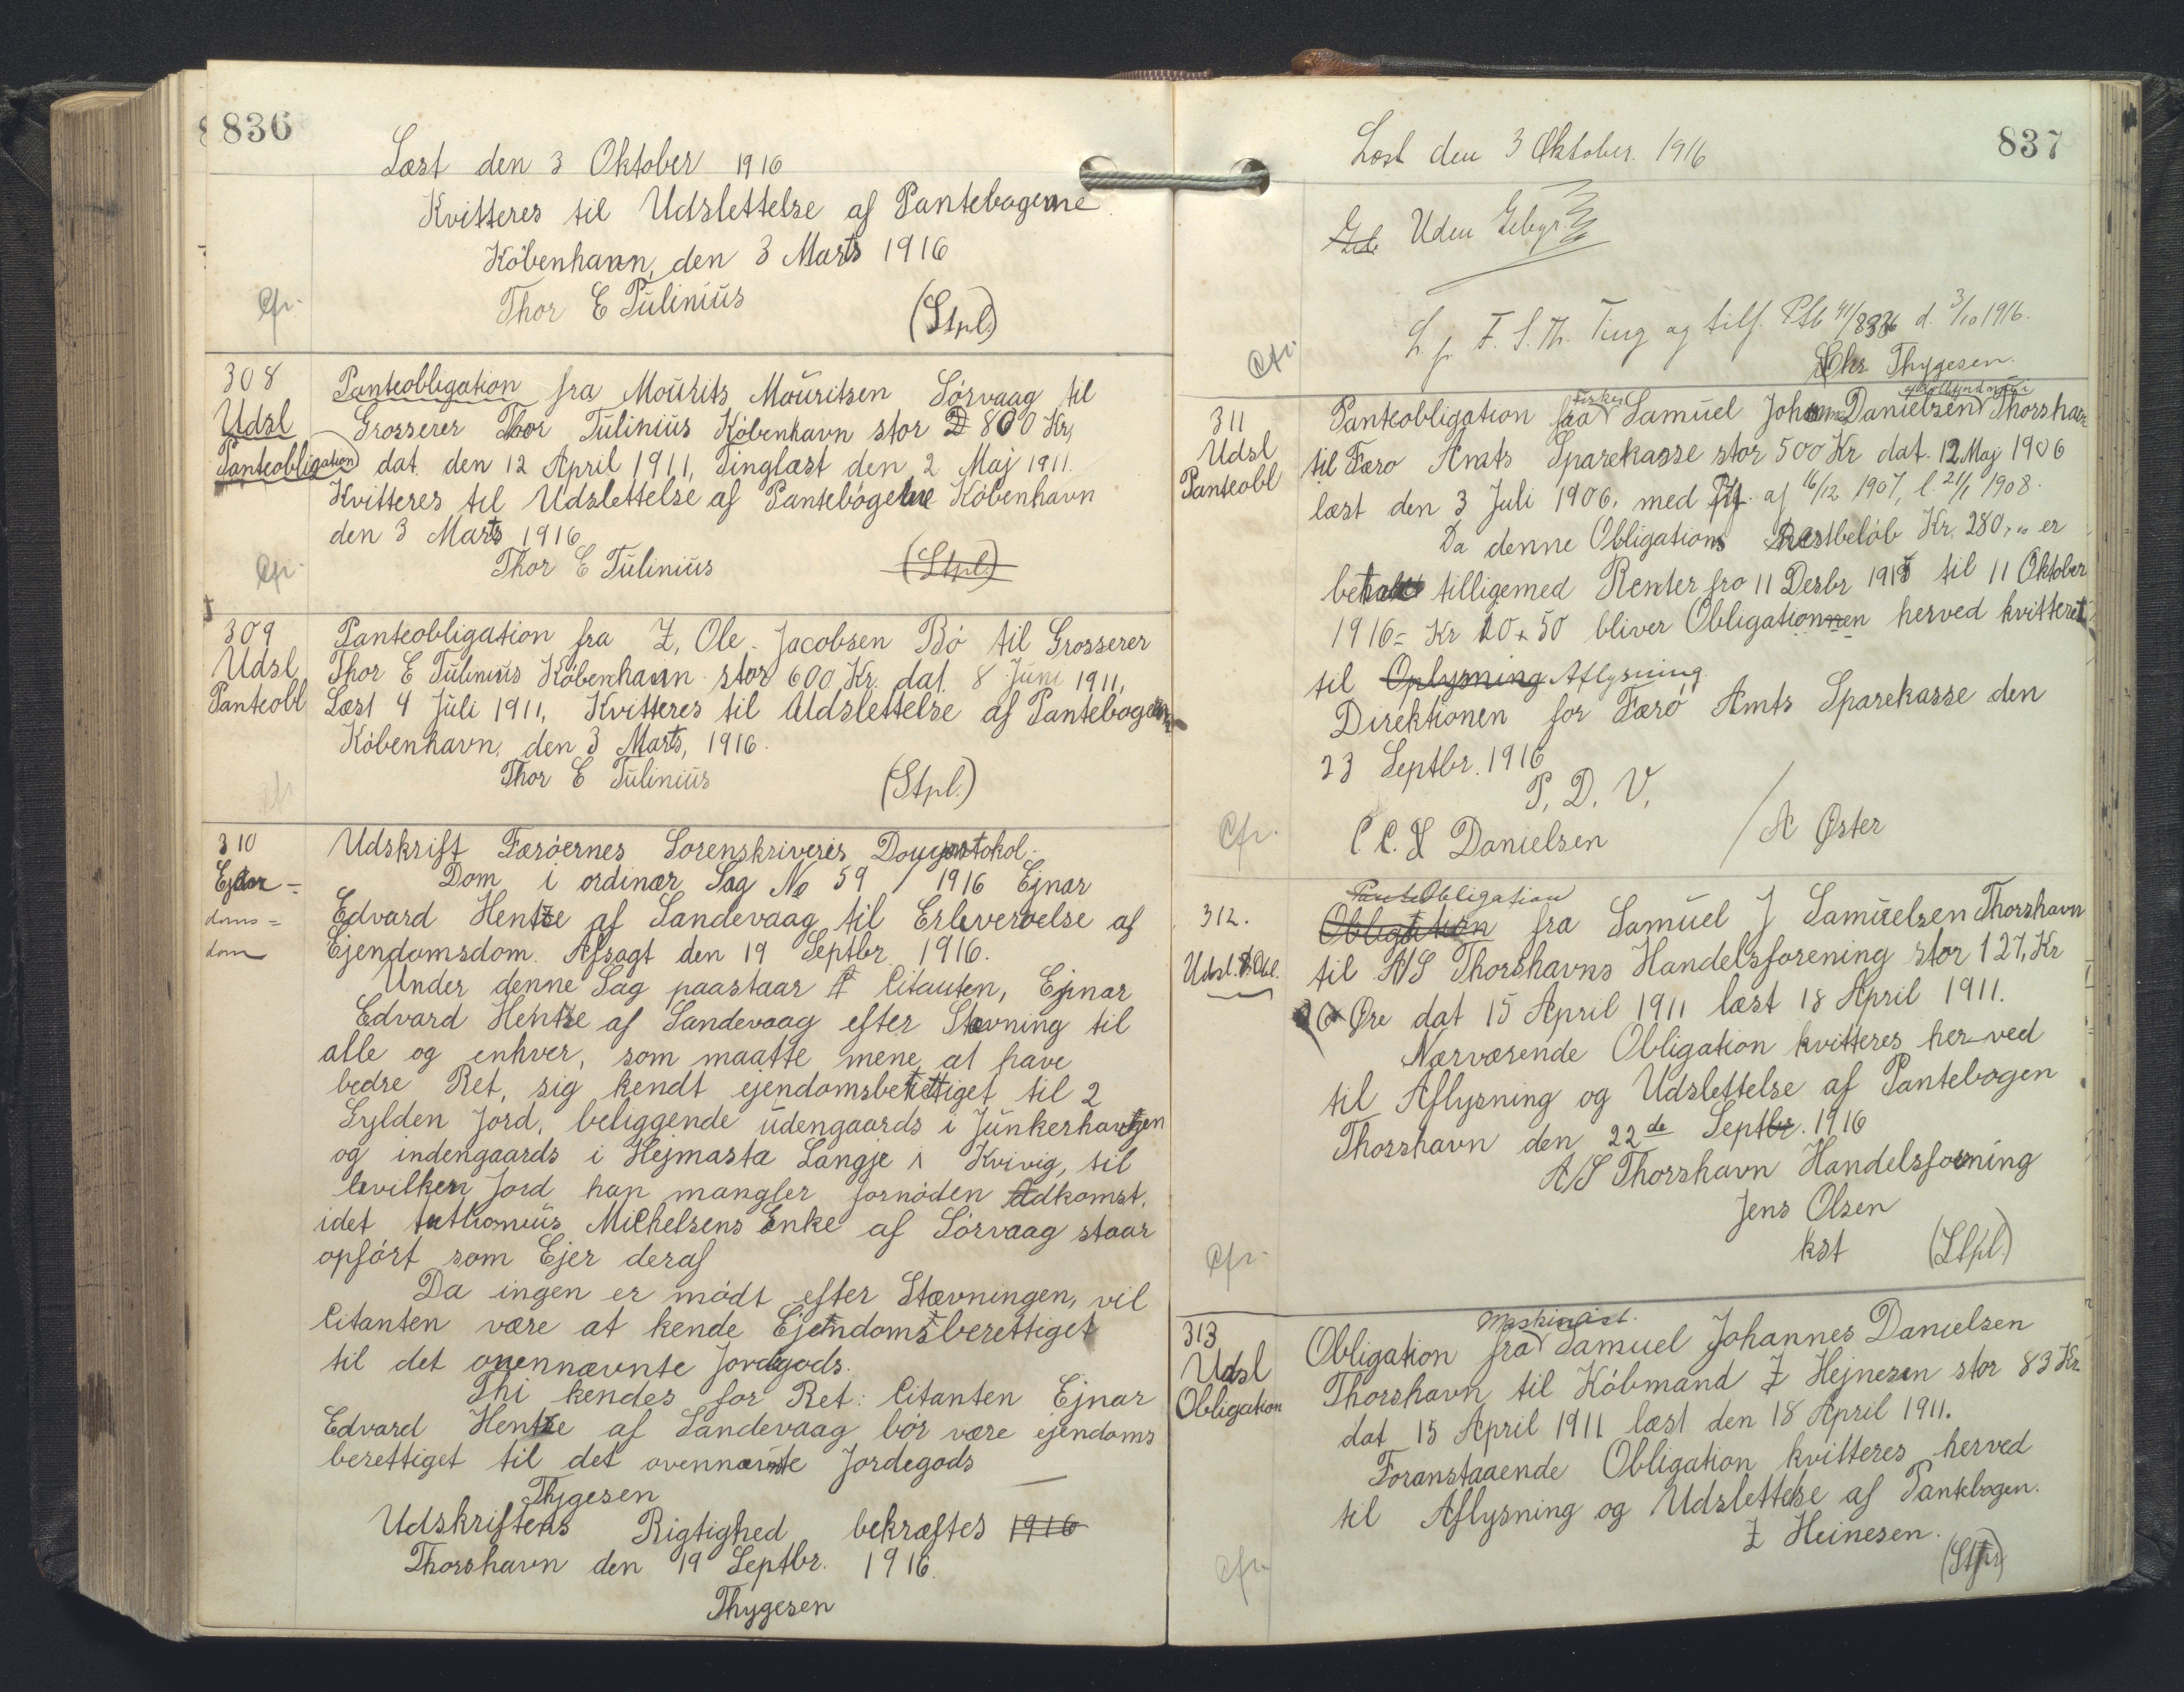 836
Læst den 3 Oktober 1916
Kvitteres til Udslettelse af Pantebogerne
København, den 3 Marts 1916
Cfr.
Thor E Tulinius (Stpl.)
308
Udsl
Panteobligation
Panteobligation fra Mourits Mouritsen Sórvaag til
Grosserer Thor Tulinius København stor 800 Kr,
dat. den 12 April 1911, Tinglæst den 2 Maj 1911.
Kvitteres til Udslettelse af Pantebógerne København
den 3 Marts 1916
Cfr.
Thor E Tulinius (Stpl.)
309
Udsl
Panteobl
Panteobligation fra Z, Ole Jacobsen Bó til Grosserer
Thor E Tulinius København stor 600 Kr. dat. 8 Juni 1911,
Læst 4 Juli 1911, Kvitteres til Udslettelse af Pantebogerne
København, den 3 Marts, 1916.
Thor E Tulinius (Stpl.)
Cfr
310
Ejen=
doms=
dom
Udskrift Færóernes Sorenskriveris Domprotokol.
Dom i ordinær Sag No 59 / 1916 Ejnar
Edvard Hentze af Sandevaag til Erhvervelse af
Ejendomsdom. Afsagt den 19 Septbr. 1916.
Under denne Sag paastaar Citanten, Ejnar
Edvard Hentze af Sandevaag efter Stævning til
alle og enhver, som maatte mene at have
bedre Ret, sig kendt ejendomsberettiget til 2
Gylden Jord, beliggende udengaards i Junkerhavgen
og indengaards i Hejmasta Langje i Kvivig, til
hvilken Jord han mangler fornóden Adkomst,
idet Michelsens Enke af Sórvaag staar
opfórt som Ejer deraf
Da ingen er módt efter Stævningen, vil
Citanten være at kende Ejendomsberettiget
til det ovennævnte Jordegods.
Thi kendes for Ret: Citanten Ejnar
Edvard Hentze af Sandevaag bór være ejendoms
berettiget til det ovennævnte Jordegods
Thygesen
Udskriftens Rigtighed bekræftes 1916
Thorshavn den 19 Septbr. 1916.
Thygesen
837
Læst den 3 Oktober. 1916
Geb Uden Gebyr.
L. p. F. S. Th. Ting og tilf. Ptb 41/836 d. 3/10 1916.
Cfr.
Chr Thygesen.
311
Udsl
Panteobl
Panteobligation fra Fisker Samuel Johan Danielsen Thorshavn
til Færo Amts Sparekasse stor 500 Kr dat. 12 Maj 1906
læst den 3 Juli 1906, med af 16/12 1907, l. 21/1 1908.
Da denne Obligations Restbelób Kr. 280,00 er
betalt tilligemed Renter fra 11 Desbr 1915 til 11 Oktober
1916= Kr 10 x 50 bliver Obligationnen herved kvitteret
til Oplysning Aflysning
Direktionen for Færó Amts Sparekasse den
23 Septbr. 1916
P. D. V.
Cfr.
C. C. Danielsen / A Øster
312.
Udsl. P. Obl.
PanteObligation
Obligation fra Samuel J Samuelsen Thorshavn
til A/S Thorshavns Handelsforening stor 127, Kr
Øre dat 15 April 1911 læst 18 April 1911.
Nærværende Obligation kvitteres her-ved
til Aflysning og Udslettelse af Pantebogen
Thorshavn den 22de Septbr. 1916
A/S Thorshavn Handelsforning
Jens Olsen
Cfr.
kst (Stpl.)
313
Udsl
Obligation
Obligation fra Maskinist. Samuel Johannes Danielsen
Thorshavn til Kóbmand Z Hejnesen stor 83 Kr
dat 15 April 1911 læst den 18 April 1911.
Foranstaaende Obligation kvitteres herved
til Aflysning og Udslettelse af Pantebogen.
Z Heinesen.
Cfr.
(Stpr)